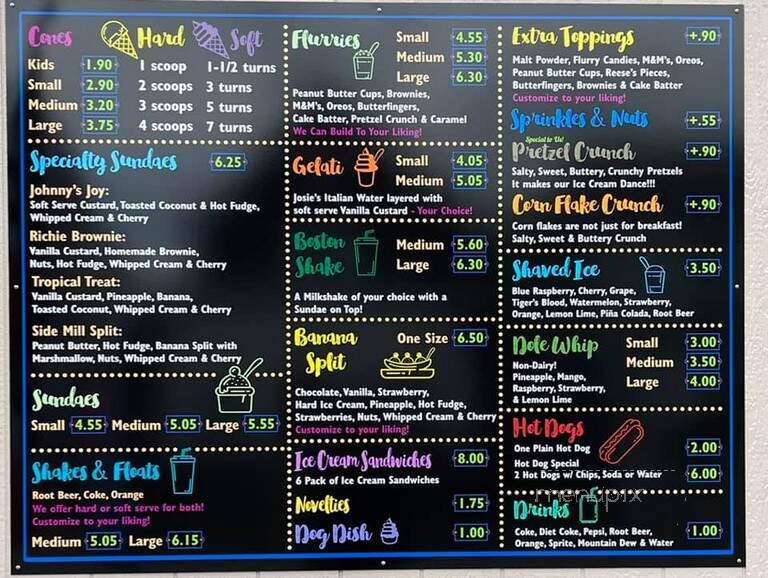 Cones Hard Soft
Kids 1.90 1 scoop 1-1/2 turns
Small 2.90 2 scoops 3 turns
Medium 3.20 3 scoops 5 turns
Large 3.75 4 scoops 7 turns
Specialty Sundaes 6.25
Johnny's Joy:
Soft Serve Custard, Toasted Coconut & Hot Fudge,
Whipped Cream & Cherry
Richie Brownie:
Vanilla Custard, Homemade Brownie,
Nuts, Hot Fudge, Whipped Cream & Cherry
Tropical Treat:
Vanilla Custard, Pineapple, Banana,
Toasted Coconut, Whipped Cream & Cherry
Side Mill Split:
Peanut Butter, Hot Fudge, Banana Split with
Marshmallow, Nuts, Whipped Cream & Cherry
Sundaes
Small 4.55 Medium 5.05 Large 5.55
Shakes & Floats
Root Beer, Coke, Orange
We offer hard or soft serve for both!
Customize to your liking!
Medium 5.05 Large 6.15
Flurries Small 4.55
Medium 5.30
Large 6.30
Peanut Butter Cups, Brownies,
M&M's, Oreos, Butterfingers,
Cake Batter, Pretzel Crunch & Caramel
We Can Build To Your Liking!
Gelati Small 4.05
Medium 5.05
Josie's Italian Water layered with
soft serve Vanilla Custard - Your Choice!
Boston Shake
Medium 5.60
Large 6.30
A Milkshake of your choice with a
Sundae on Top!
Banana Split
One Size 6.50
Chocolate, Vanilla, Strawberry,
Hard Ice Cream, Pineapple, Hot Fudge,
Strawberries, Nuts, Whipped Cream & Cherry
Customize to your liking!
Ice Cream Sandwiches 8.00
6 Pack of Ice Cream Sandwiches
Novelties 1.75
Dog Dish 1.00
Extra Toppings +.90
Malt Powder, Flurry Candies, M&M's, Oreos,
Peanut Butter Cups, Reese's Pieces,
Butterfingers, Brownies & Cake Batter
Customize to your liking!
Sprinkles & Nuts +.55
Special to Us!
Pretzel Crunch +.90
Salty, Sweet, Buttery, Crunchy Pretzels
It makes our Ice Cream Dance!!!
Corn Flake Crunch +.90
Corn flakes are not just for breakfast!
Salty, Sweet & Buttery Crunch
Shaved Ice 3.50
Blue Raspberry, Cherry, Grape,
Tiger's Blood, Watermelon, Strawberry,
Orange, Lemon Lime, Piña Colada, Root Beer
Dole Whip Small 3.00
Non-Dairy! Medium 3.50
Pineapple, Mango,
Raspberry, Strawberry, Large 4.00
& Lemon Lime
Hot Dogs
One Plain Hot Dog 2.00
Hot Dog Special
2 Hot Dogs w/ Chips, Soda or Water 6.00
menupix
Drinks
Coke, Diet Coke, Pepsi, Root Beer,
Orange, Sprite, Mountain Dew & Water 1.00